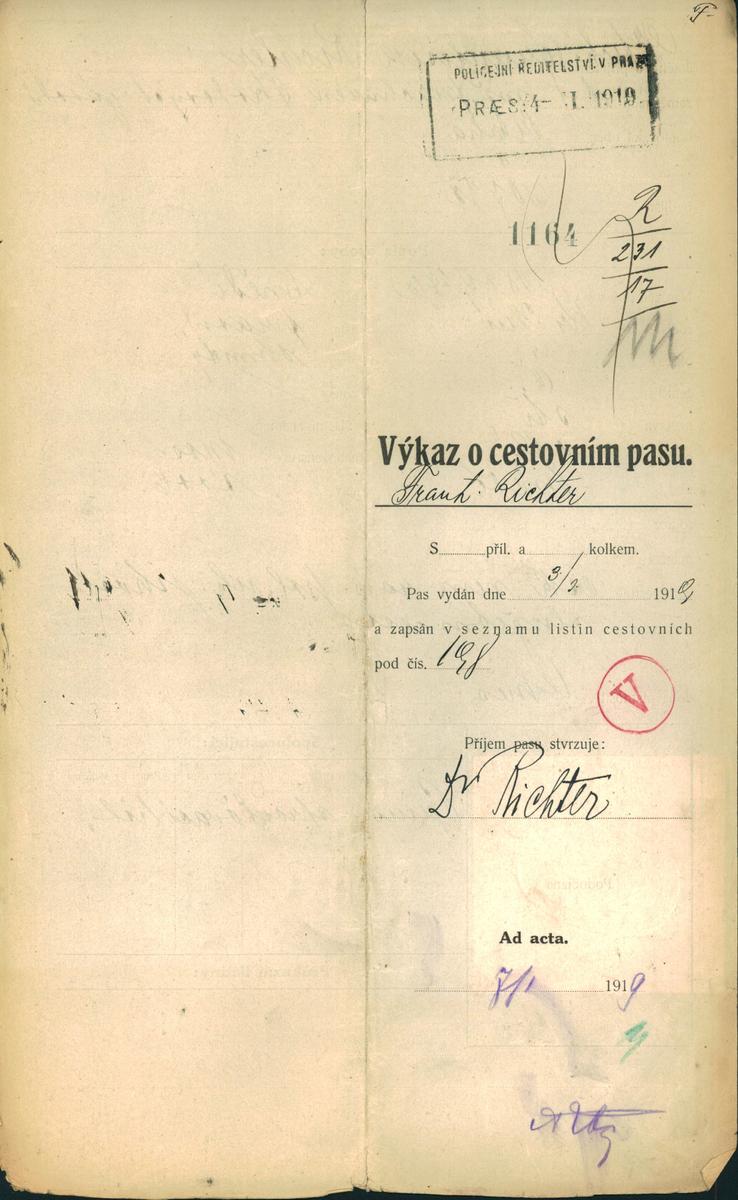 F.
POLICEJNÍ ŘEDITELSTVÍ V PRAZE
PRÆS. 4- 1919
1164
R
231
17
Výkaz o cestovním pasu.
Frant. Richter
S příl. a kolkem.
Pas vydán dne 3/ 191
a zapsán v seznamu listin cestovních
pod čís. 198
V
Příjem pasu stvrzuje:
Dr Richter
Ad acta.
7/1 1919